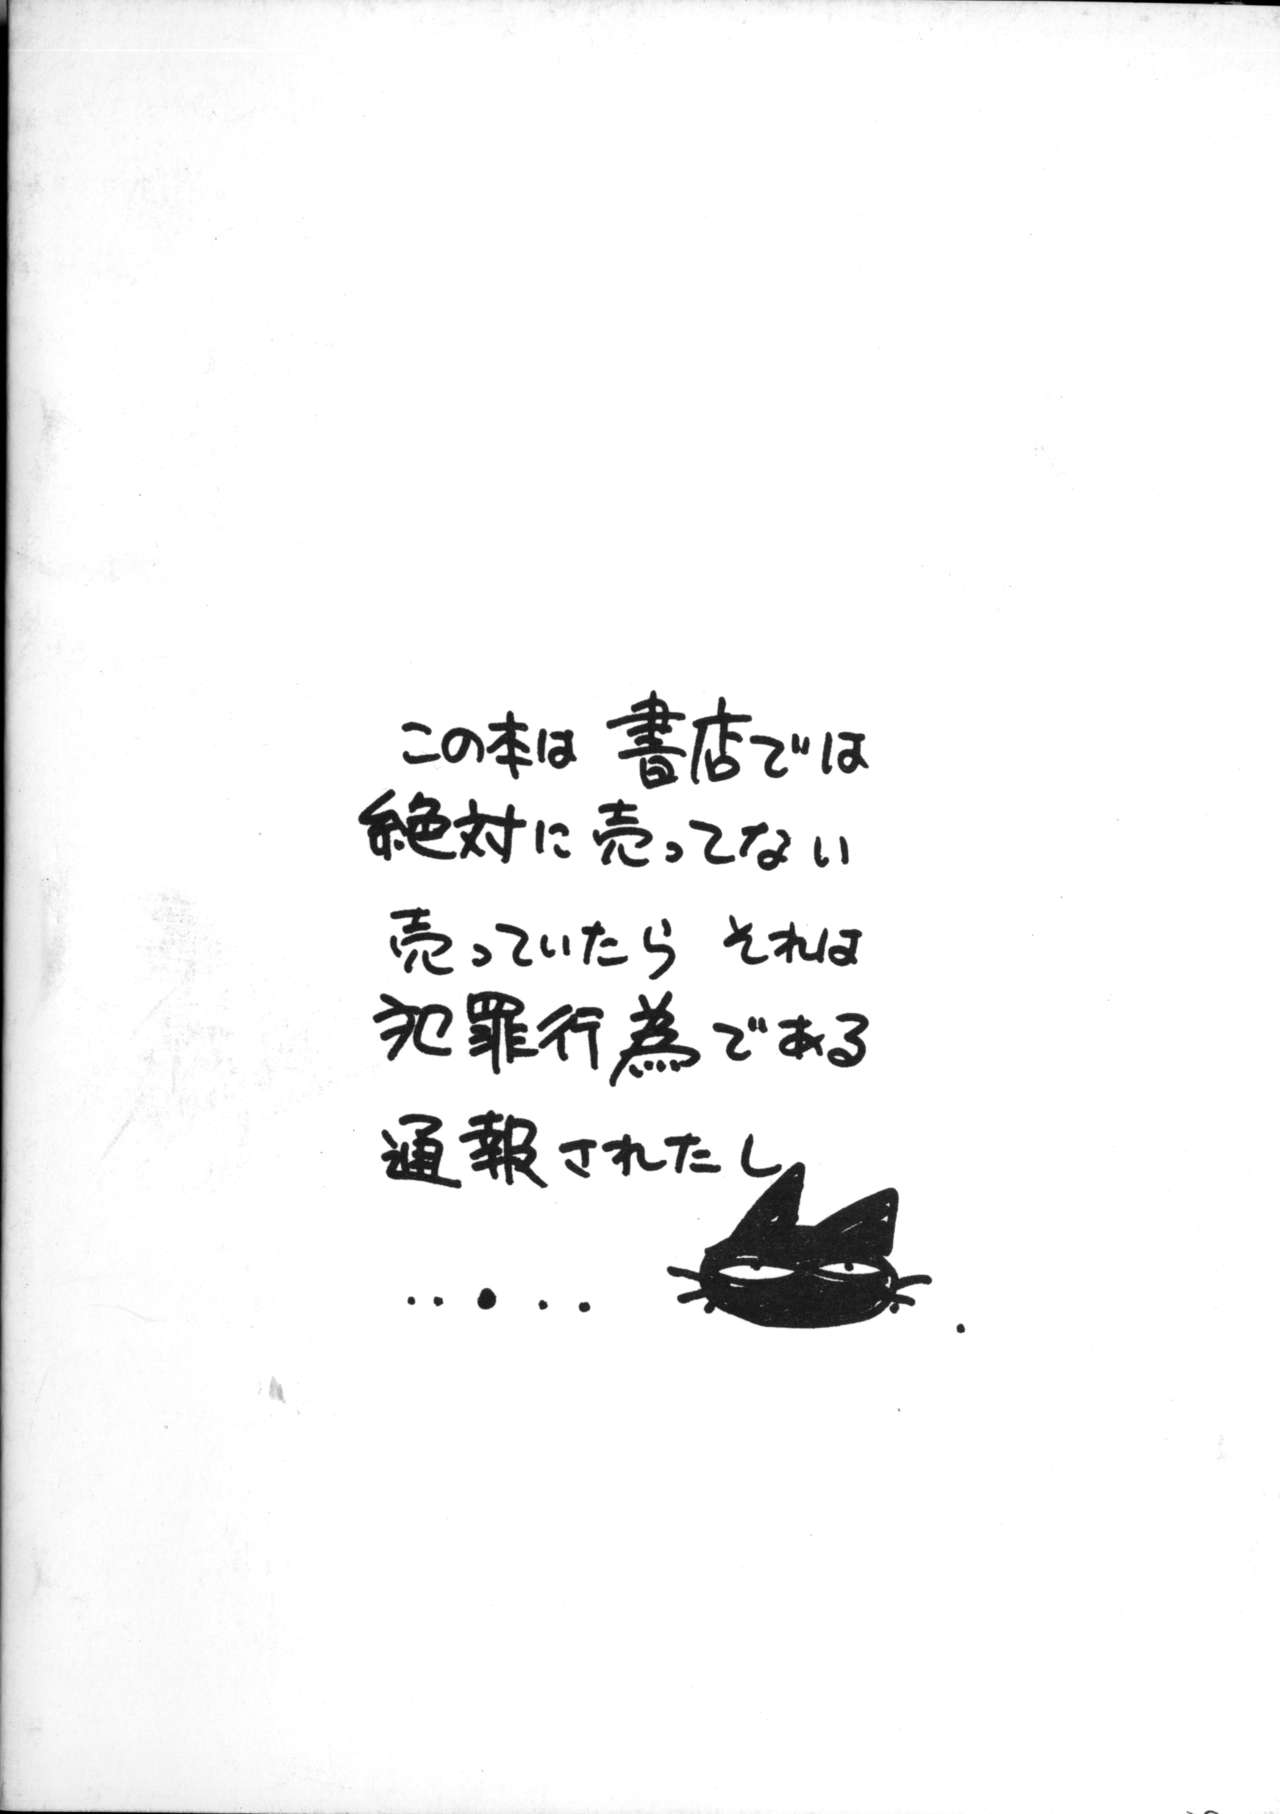 この本は 書店では
絶対に売ってない
売っていたら それは
犯罪行為である
通報されたし
・・●・・